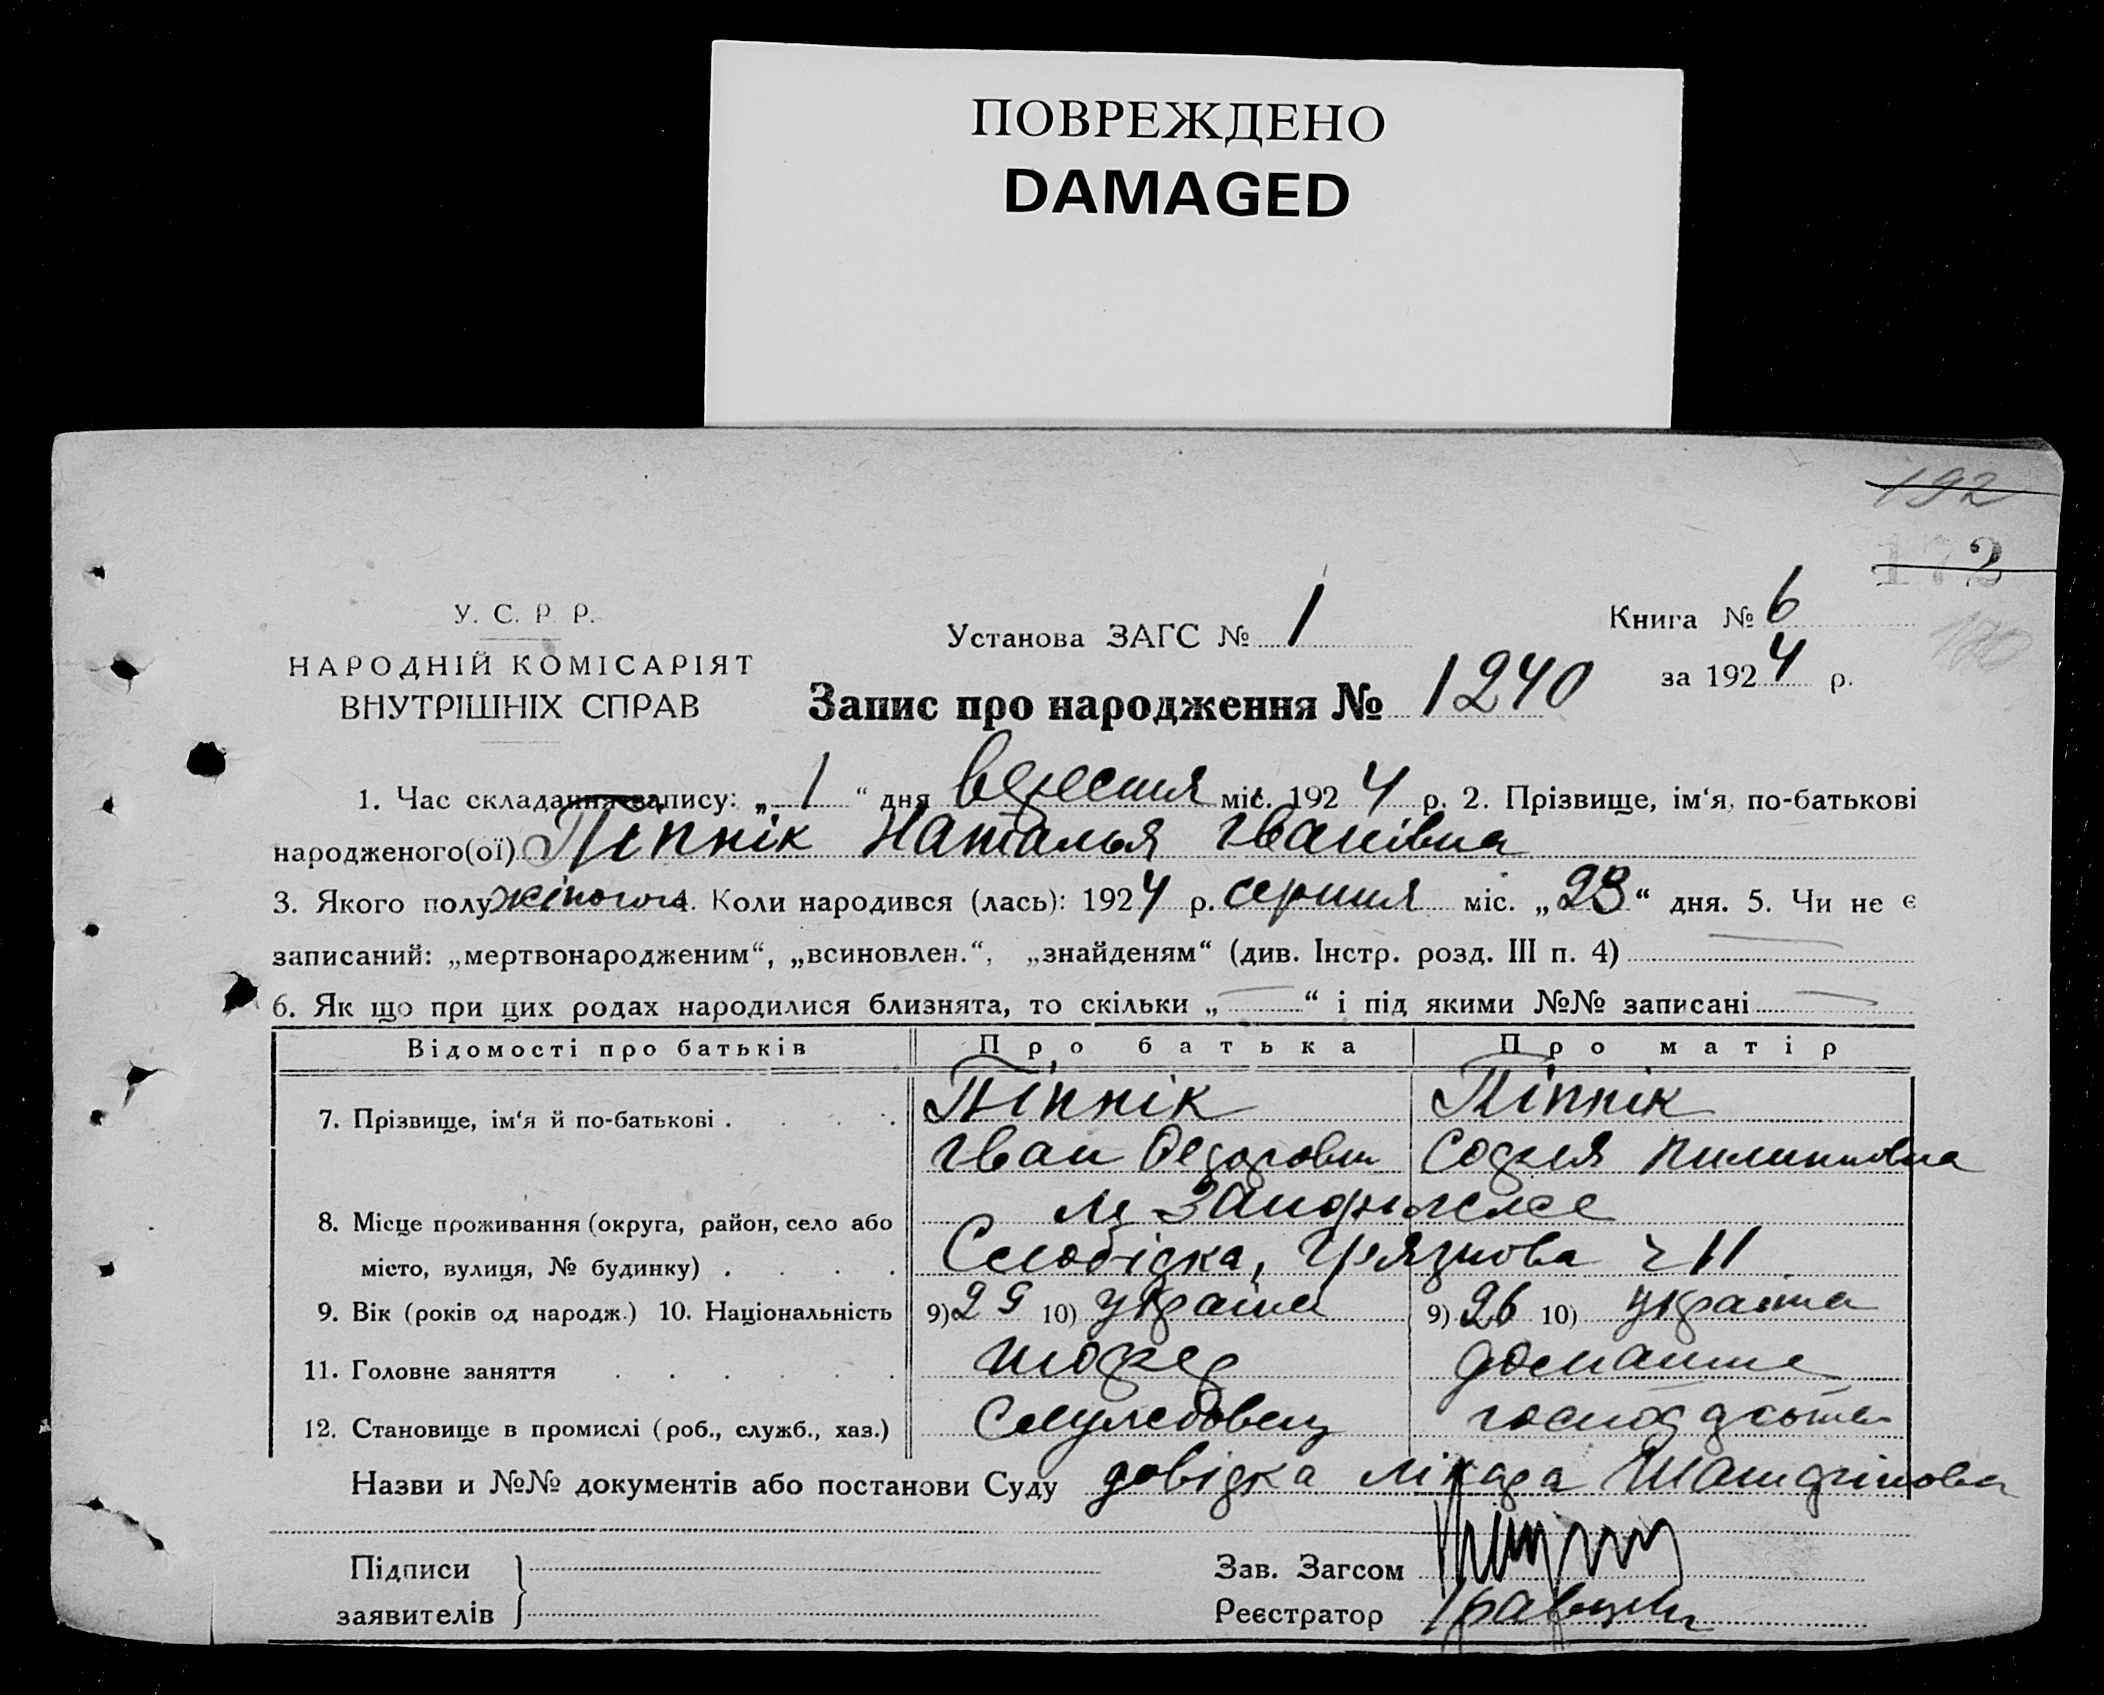 ПОВРЕЖДЕНО
DAMAGED
192
172
У. С. Р. Р.
НАРОДНІЙ КОМІСАРІЯТ
ВНУТРІШНІХ СПРАВ
Установа ЗАГС № 1
Книга № 6
за 1924 р.
Запис про народження № 1240
1. Час складання запису: „ 1 “ дня вересня міс. 1924 р. 2. Прізвище, ім‘я, по-батькові
народженого(ої) Піпнік Наталья Іванівна
3. Якого полу жіночого 4. Коли народився (лась): 1924 р. серпня міс. „23“ дня. 5. Чи не є
записаний: „мертвонародженим“, „всиновлен.“, „знайденям“ (див. Інстр. розд. III п. 4)
6. Як що при цих родах народилися близнята, то скільки „ — “ і під якими №№ записані —
Відомості про батьків Про батька Про матір
7. Прізвище, ім‘я й по-батькові . . . . Піпнік Піпнік
Іван Федорович Софія Пилиповна
8. Місце проживання (округа, район, село або м. Запоріжжє
місто, вулиця, № будинку) . . . . Слобідка, Грязнова 11
9. Вік (років од народж.) 10. Національність 9) 29 10) україн 9) 26 10) українка
11. Головне заняття . . . . . . шофер домашнє
12. Становище в промислі (роб., служб., хаз.) службовец
Назви и №№ документів або постанови Суду довідка лікаря
Підписи
заявителів
Зав. Загсом
Реєстратор